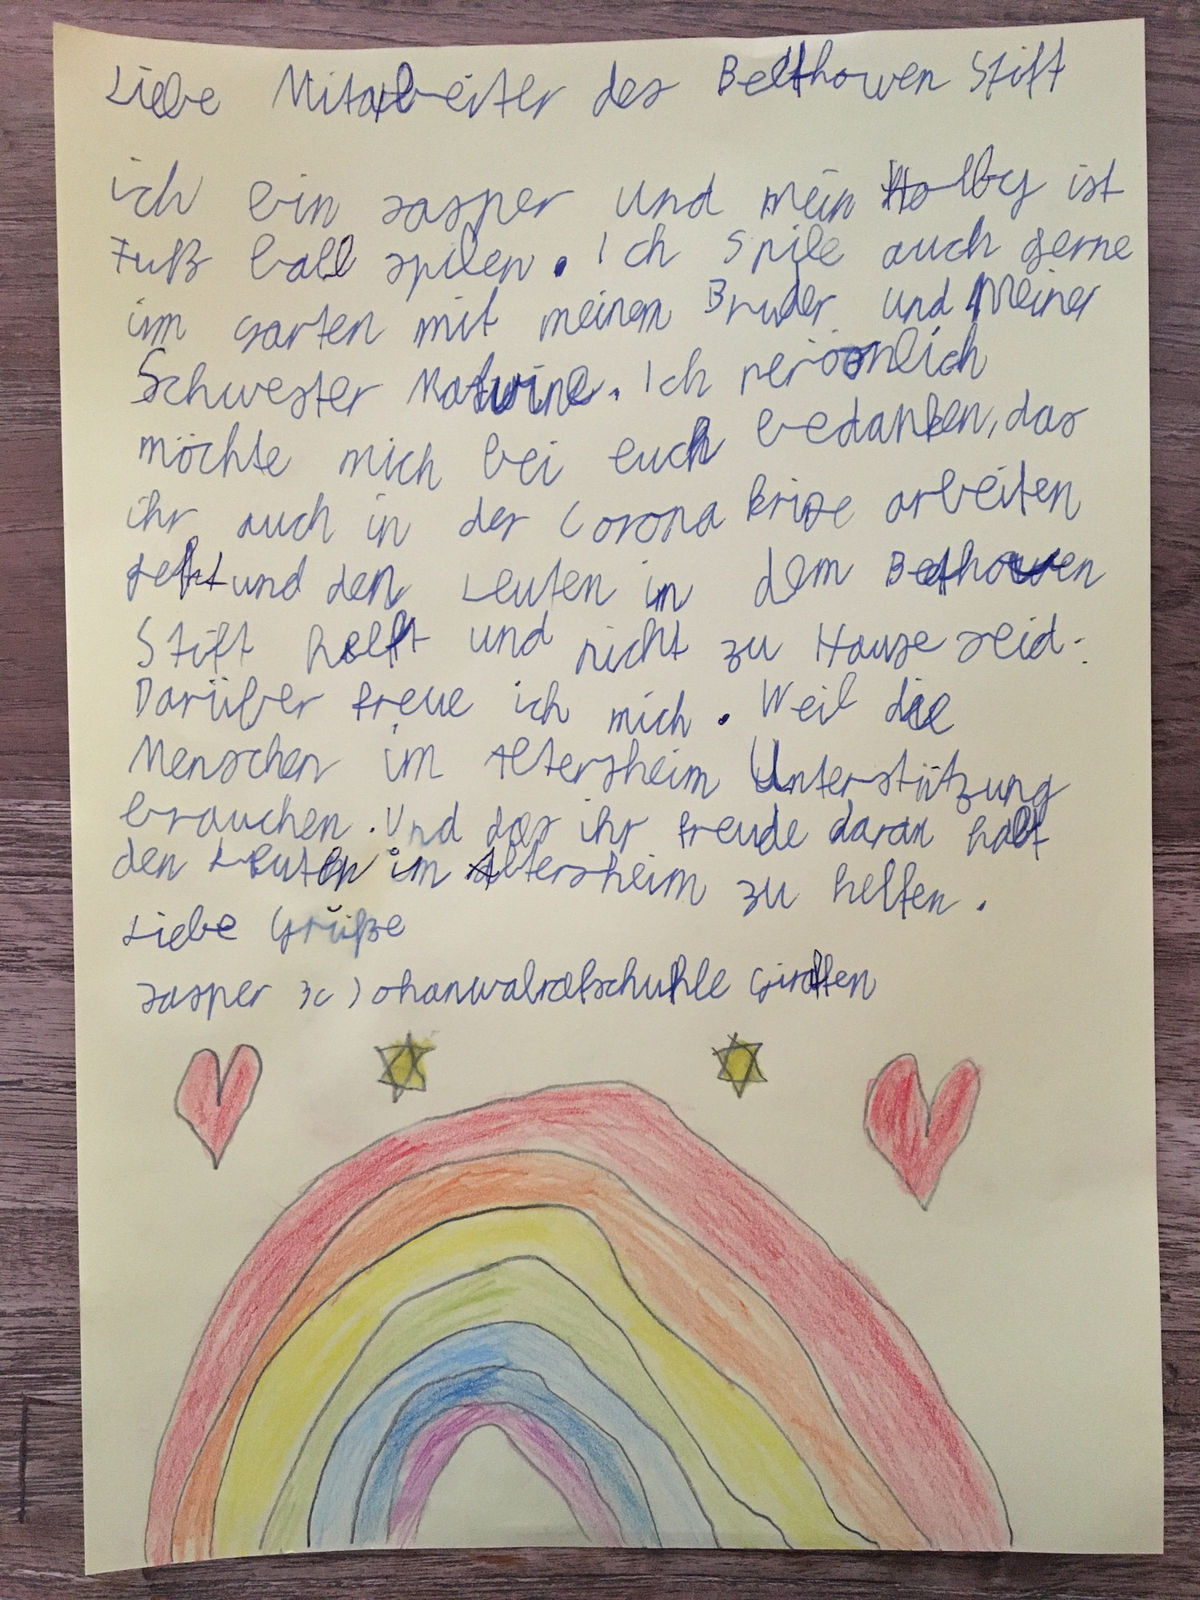 Liebe Mitarbeiter des Beethowen Stift
ich bin Jasper und mein Hobby ist
Fuß ball spilen. Ich Spile auch gerne
im Garten mit meinem Bruder und Meiner
Schwester. Ich persönlich
möchte mich bei euch bedanken, das
ihr auch in der Corona krise arbeiten
geht und den Leuten in dem Bethowen
Stift helft und nicht zu Hause seid.
Darüber freue ich mich. Weil die
Menschen im Altersheim Unterstützung
brauchen. Und das ihr freude daran habt
den Leuten im Altersheim zu helfen.
Liebe Grüße
Jasper 3c Giraffen